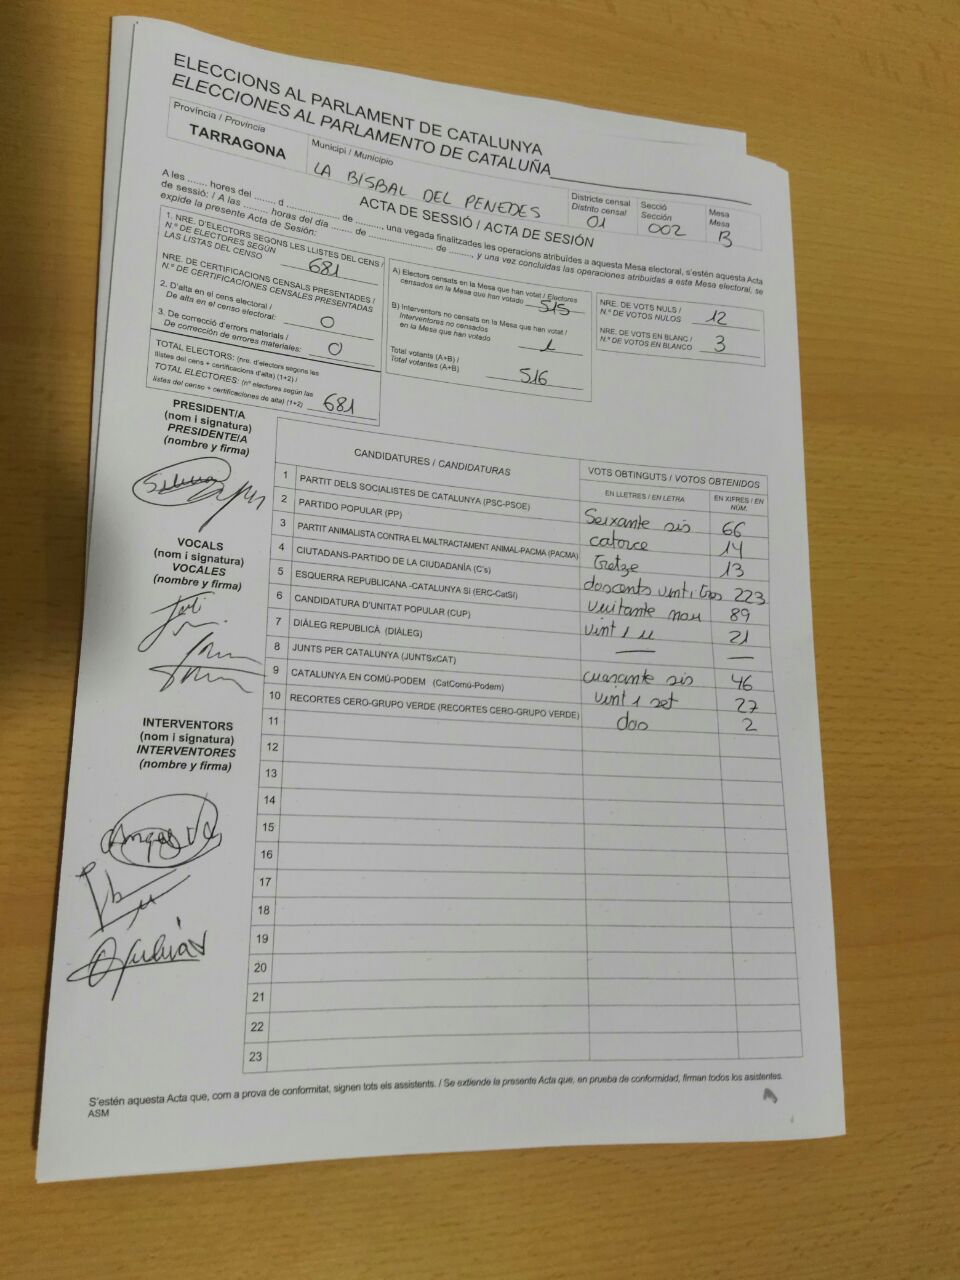 ELECCIONS AL PARLAMENT DE CATALUNYA
ELECCIONES AL PARLAMENTO DE CATALUÑA
Província / Provincia
TARRAGONA
Municipi / Municipio
LA BISBAL DEL PENEDES
Districte censal
Distrito censal
01
Secció
Sección
002
Mesa
Mesa
B
ACTA DE SESSIÓ / ACTA DE SESIÓN
A les ....... hores del ....... d ................ de ........, una vegada finalitzades les operacions atribuïdes a aquesta Mesa electoral, s'estén aquesta Acta
de sessió: / A las ........ horas del día ....... de .................... de ........, y una vez concluidas las operaciones atribuidas a esta Mesa electoral, se
expide la presente Acta de Sesión:
1. NRE. D'ELECTORS SEGONS LES LLISTES DEL CENS /
N.º DE ELECTORES SEGÚN
LAS LISTAS DEL CENSO
681
NRE. DE CERTIFICACIONS CENSALS PRESENTADES /
N.º DE CERTIFICACIONES CENSALES PRESENTADAS
2. D'alta en el cens electoral /
De alta en el censo electoral:
0
3. De correcció d'errors materials /
De corrección de errores materiales:
0
TOTAL ELECTORS: (nre. d'electors segons les
llistes del cens + certificacions d'alta) (1+2) /
TOTAL ELECTORES: (nº electores según las
listas del censo + certificaciones de alta) (1+2)
681
A) Electors censats en la Mesa que han votat / Electores
censados en la Mesa que han votado
515
B) Interventors no censats en la Mesa que han votat /
Interventores no censados
en la Mesa que han votado
1
Total votants (A+B) /
Total votantes (A+B)
516
NRE. DE VOTS NULS /
N.º DE VOTOS NULOS
12
NRE. DE VOTS EN BLANC /
N.º DE VOTOS EN BLANCO
3
PRESIDENT/A
(nom i signatura)
PRESIDENTE/A
(nombre y firma)
VOCALS
(nom i signatura)
VOCALES
(nombre y firma)
INTERVENTORS
(nom i signatura)
INTERVENTORES
(nombre y firma)
CANDIDATURES / CANDIDATURAS
VOTS OBTINGUTS / VOTOS OBTENIDOS
EN LLETRES / EN LETRA
EN XIFRES / EN NÚM.
1 PARTIT DELS SOCIALISTES DE CATALUNYA (PSC-PSOE) Seixante sis 66
2 PARTIDO POPULAR (PP) catorce 14
3 PARTIT ANIMALISTA CONTRA EL MALTRACTAMENT ANIMAL-PACMA (PACMA) Tretze 13
4 CIUTADANS-PARTIDO DE LA CIUDADANÍA (C's) doscents vint i tres 223
5 ESQUERRA REPUBLICANA -CATALUNYA SÍ (ERC-CatSí) vuitante nou 89
6 CANDIDATURA D'UNITAT POPULAR (CUP) vint i u 21
7 DIÀLEG REPUBLICÀ (DIÀLEG) — —
8 JUNTS PER CATALUNYA (JUNTSxCAT) cuarante sis 46
9 CATALUNYA EN COMÚ-PODEM (CatComú-Podem) vint i set 27
10 RECORTES CERO-GRUPO VERDE (RECORTES CERO-GRUPO VERDE) dos 2
11
12
13
14
15
16
17
18
19
20
21
22
23
S'estén aquesta Acta que, com a prova de conformitat, signen tots els assistents. / Se extiende la presente Acta que, en prueba de conformidad, firman todos los asistentes.
ASM